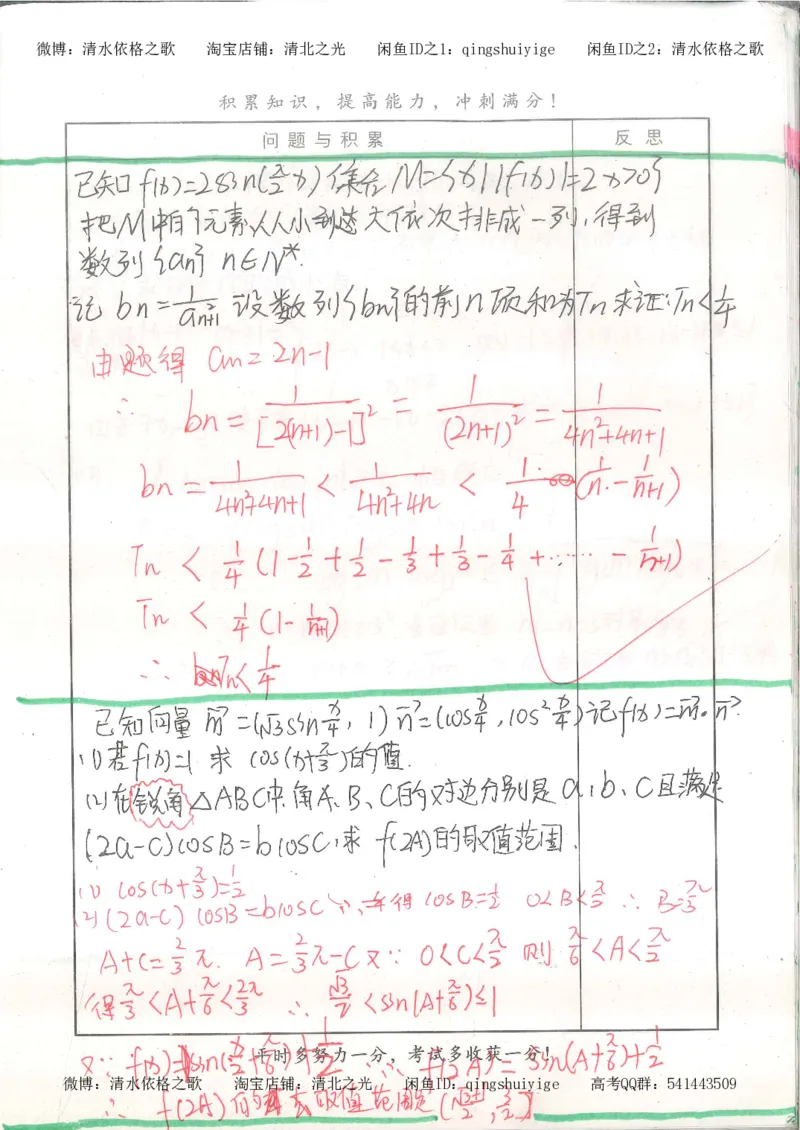 微博：清水依格之歌 淘宝店铺：清北之光 闲鱼ID之1：qingshuiyige 闲鱼ID之2：清水依格之歌
积累知识，提高能力，冲刺满分！
问题与积累 反思
已知f(x)=2sin(π/2 x) 集合M={x||f(x)|=2 x>0}
把M中的元素从小到大依次排成一列,得到
数列{an} n∈N*.
记 bn=1/a²n+1 设数列{bn}的前n项和为Tn 求证:Tn<1/4
由题得 an=2n-1
∴ bn=1/[2(n+1)-1]²=1/(2n+1)²=1/4n²+4n+1
bn=1/4n²+4n+1<1/4n²+4n<1/4(1/n-1/n+1)
Tn<1/4(1-1/2+1/2-1/3+1/3-1/4+……-1/n+1)
Tn<1/4(1-1/n+1)
∴ Tn<1/4
已知向量m=(√3sin x/4, 1) n=(cos x/4, cos² x/4)记f(x)=m·n.
(1)若f(x)=1 求 cos(x+π/3)的值.
(2)在锐角△ABC中.角A、B、C的对边分别是a、b、c且满足
(2a-c)cosB=bcosC,求 f(2A)的取值范围.
(1) cos(x+π/3)=1/2
(2)(2a-c)cosB=bcosC ∴ 得cosB=1/2 0<B<π/2 ∴ B=π/3
A+C=2/3π. A=2/3π-C 又∵ 0<C<π/2 则 π/6<A<π/2
得π/3<A+π/6<2π/3 ∴ √3/2<sin(A+π/6)≤1
又∵ f(x)=sin(x/2+π/6)+1/2 ∴ f(2A)=sin(A+π/6)+1/2
平时多努力一分，考试多收获一分！
微博：清水依格之歌 淘宝店铺：清北之光 闲鱼ID：qingshuiyige 高考QQ群：541443509
∴ f(2A)的取值范围是(√3+1/2, 3/2]